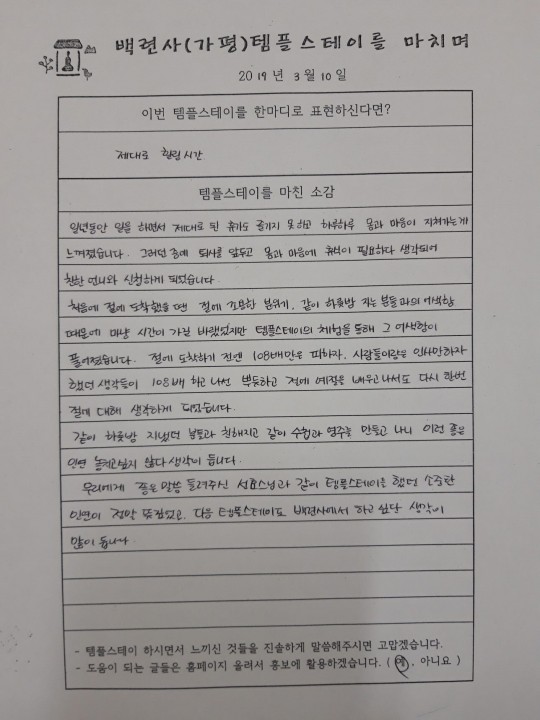 백련사(가평)템플스테이를 마치며
2019년 3월 10일
이번 템플스테이를 한마디로 표현하신다면?
제대로 힐링시간
템플스테이를 마친 소감
일년동안 일을 하면서 제대로 된 휴가도 즐기지 못하고 하루하루 몸과 마음이 지쳐가는게
느껴졌습니다. 그러던 중에 퇴사를 앞두고 몸과 마음에 휴식이 필요하다 생각되어
친한 언니와 신청하게 되었습니다.
처음에 절에 도착했을 땐 절에 조용한 분위기, 같이 하룻밤 자는 분들과의 어색함
때문에 마냥 시간이 가길 바랬었지만 템플스테이의 체험을 통해 그 어색함이
풀어졌습니다. 절에 도착하기 전엔 108배만은 피하자, 사람들이랑은 인사만하자
했던 생각들이 108배 하고 나선 뿌듯하고 절에 예절을 배우고나서도 다시 한번
절에 대해 생각하게 되었습니다.
같이 하룻밤 지냈던 분들과 친해지고 같이 수첩과 염주를 만들고 나니 이런 좋은
인연 놓치고싶지 않다 생각이 듭니다.
우리에게 좋은 말씀 들려주신 스님과 같이 템플스테이를 했던 소중한
인연이 정말 뜻깊었고, 다음 템플스테이도 백련사에서 하고 싶단 생각이
많이 듭니다.
- 템플스테이 하시면서 느끼신 것들을 진솔하게 말씀해주시면 고맙겠습니다.
- 도움이 되는 글들은 홈페이지 올려서 홍보에 활용하겠습니다. ( 예, 아니요 )